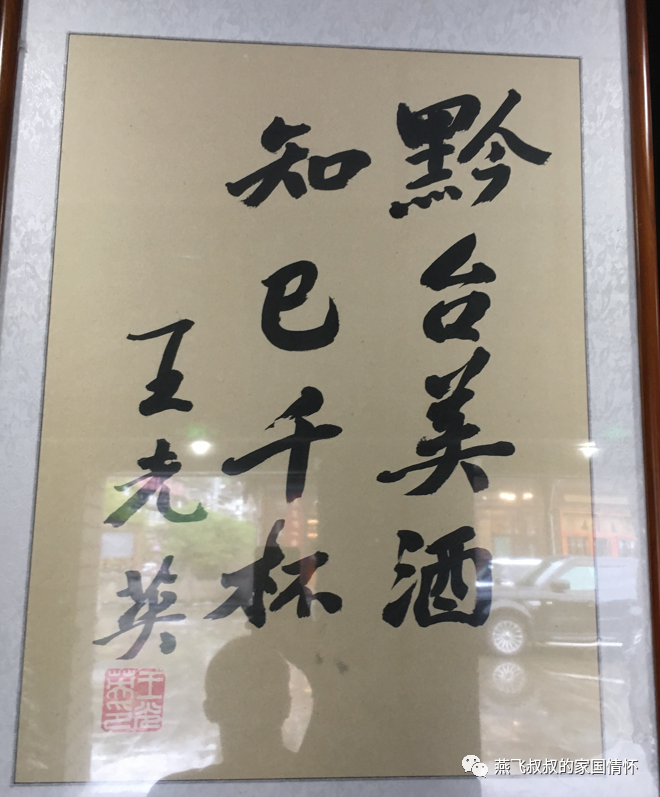 黔台美酒
知己千杯
王光英
燕飞叔叔的家国情怀